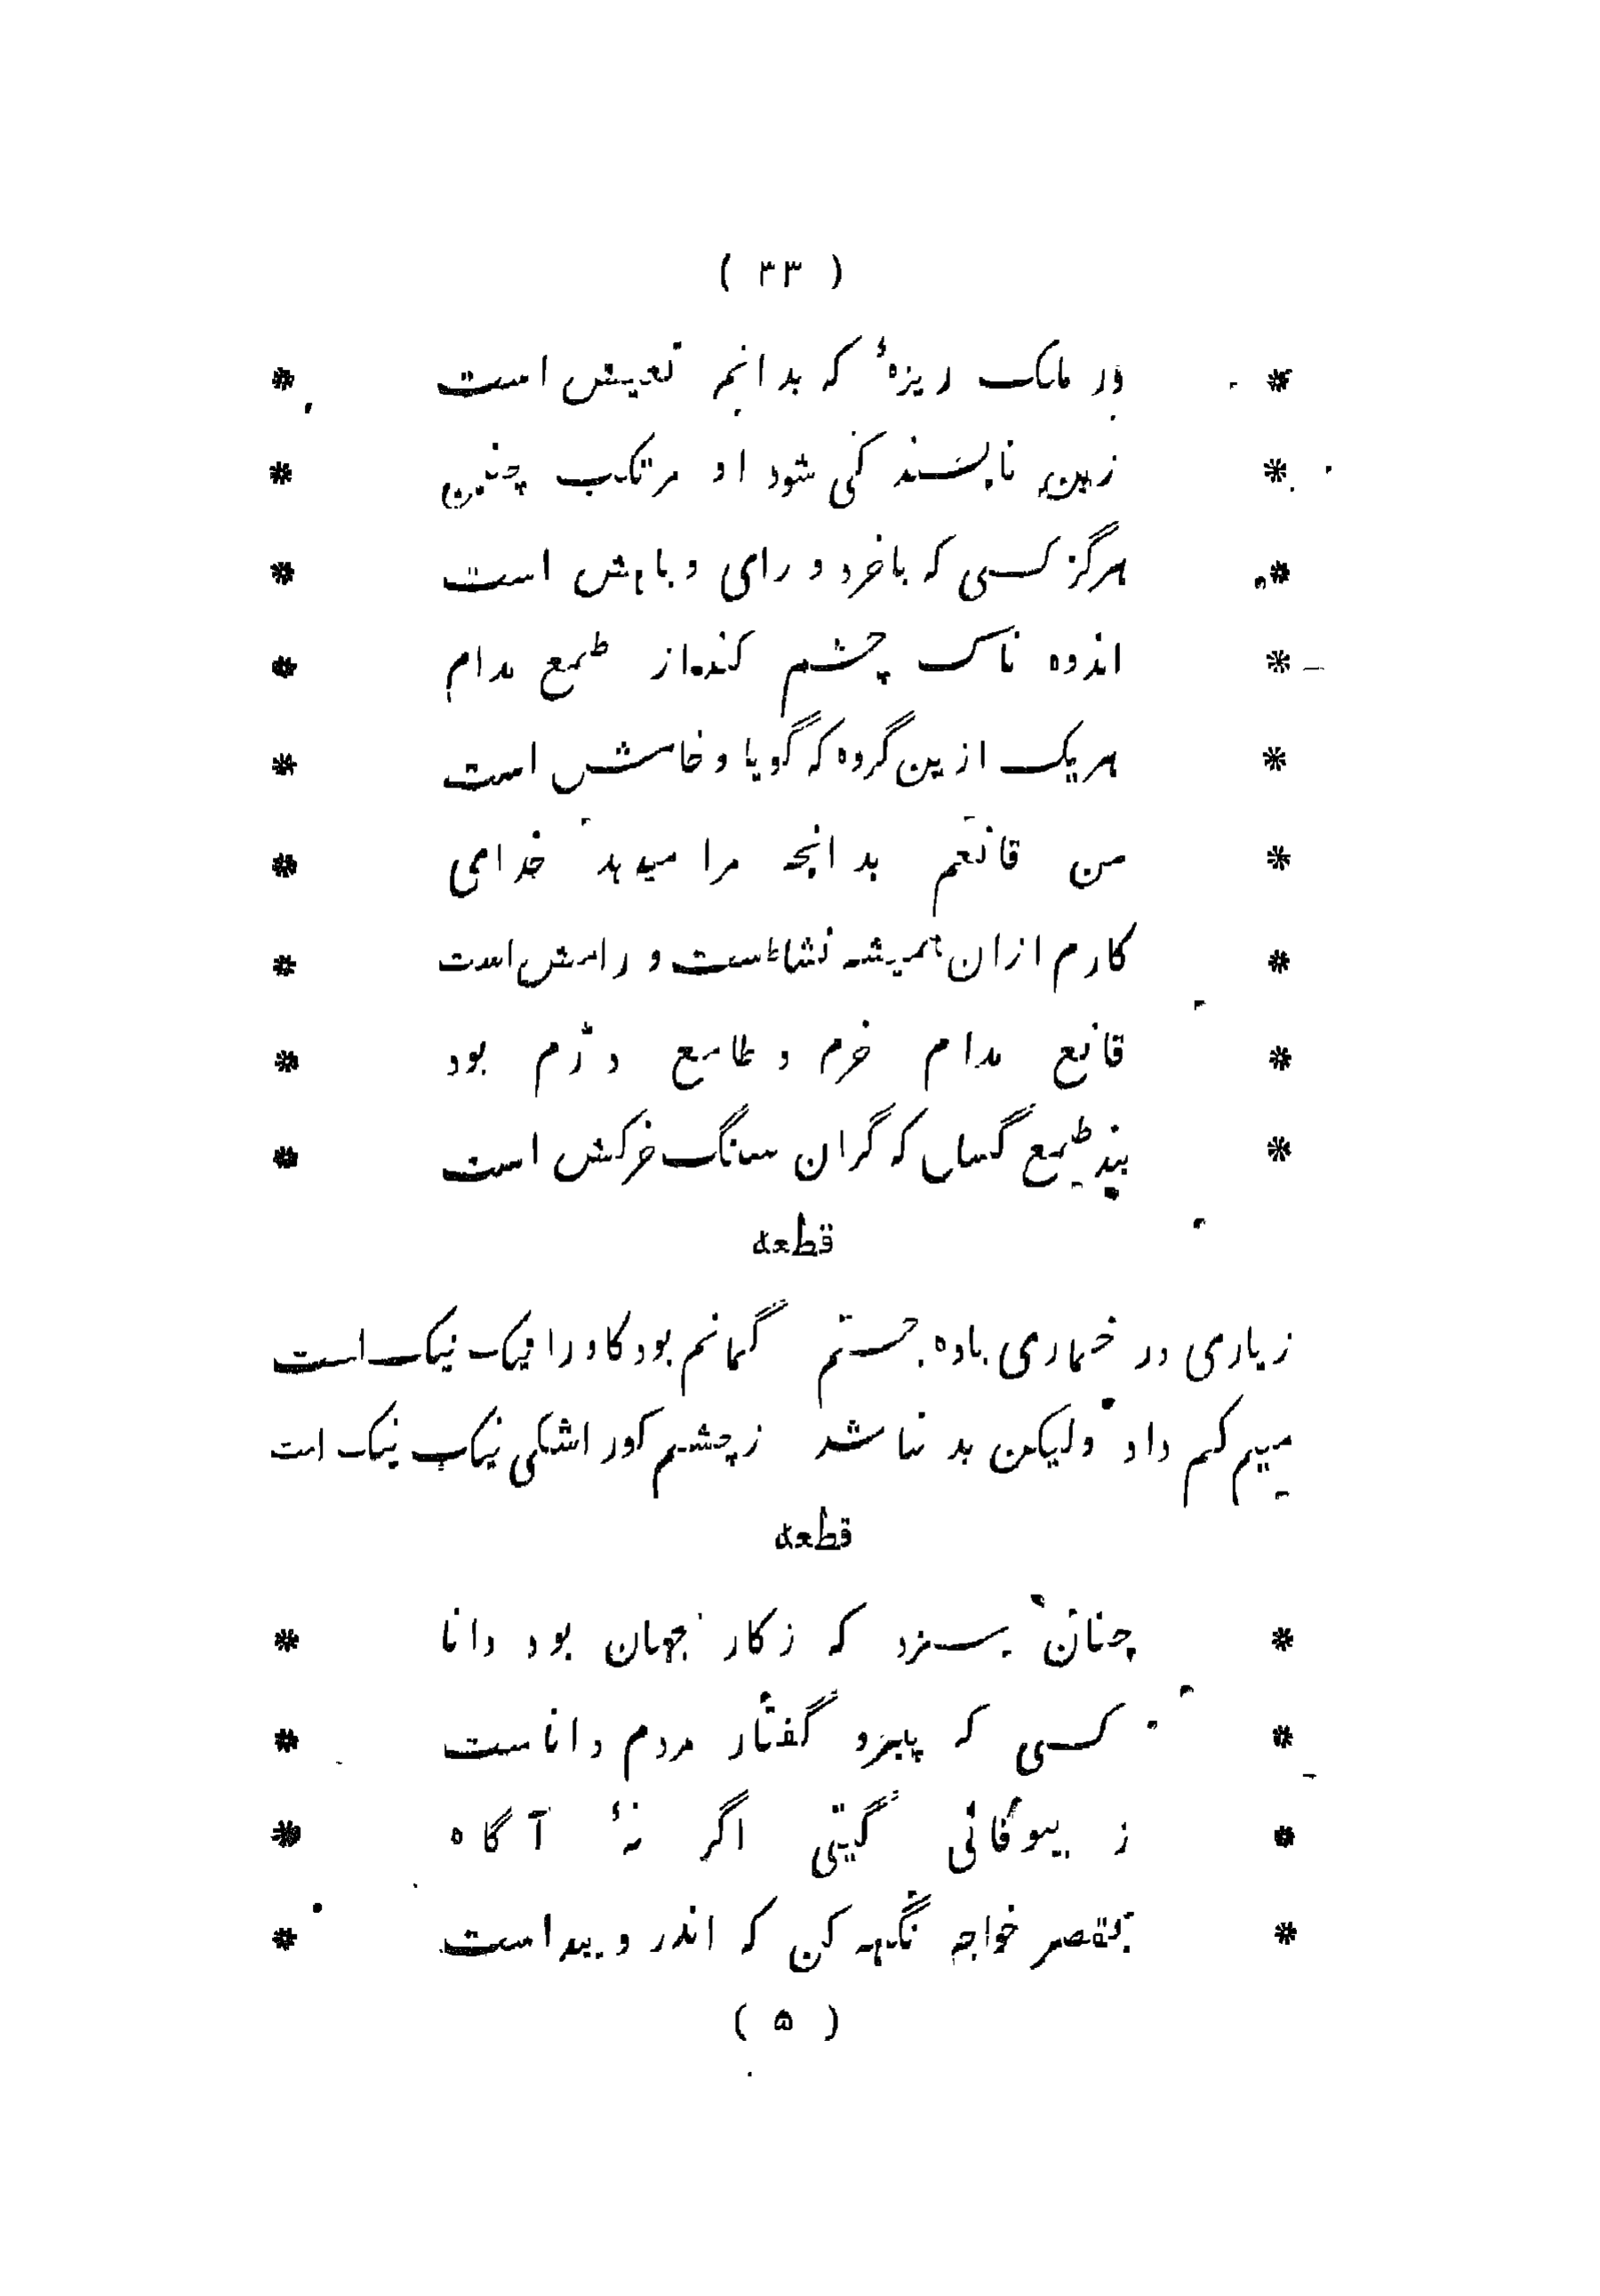 ( ۳۳ )
* ور ملک ریزهٔ که بدانم تعیش است *
* زین ناپسند کی شود او مرتکب چنین *
* هرگز کسی که باخرد و رای و باهش است *
* اندوه ناک چشم کند از طمع مدام *
* هریک ازین گروه که گویا و خامش است *
* من قانعم بدانچه مرا میدهد خدای *
* کارم ازان همیشه نشاطست و رامش است *
* قانع مدام خرم و طامع دژم بود *
* بند طمع گسل که گران سنگ خرکش است *
قطعه
زیاری در خماری باده جستم گمانم بود کاو را نیک نیک است
میم کم داد ولیکن بد نباشد ز چشم کور اشکی نیک نیک است
قطعه
* چنان سزد که ز کار جهان بود دانا *
* کسی که پیرو گفتار مردم داناست *
* ز بیوفائی گیتی اگر نهٔ آگاه *
* بقصر خواجه نگهه کن که اندر و پیداست *
( ۵ )